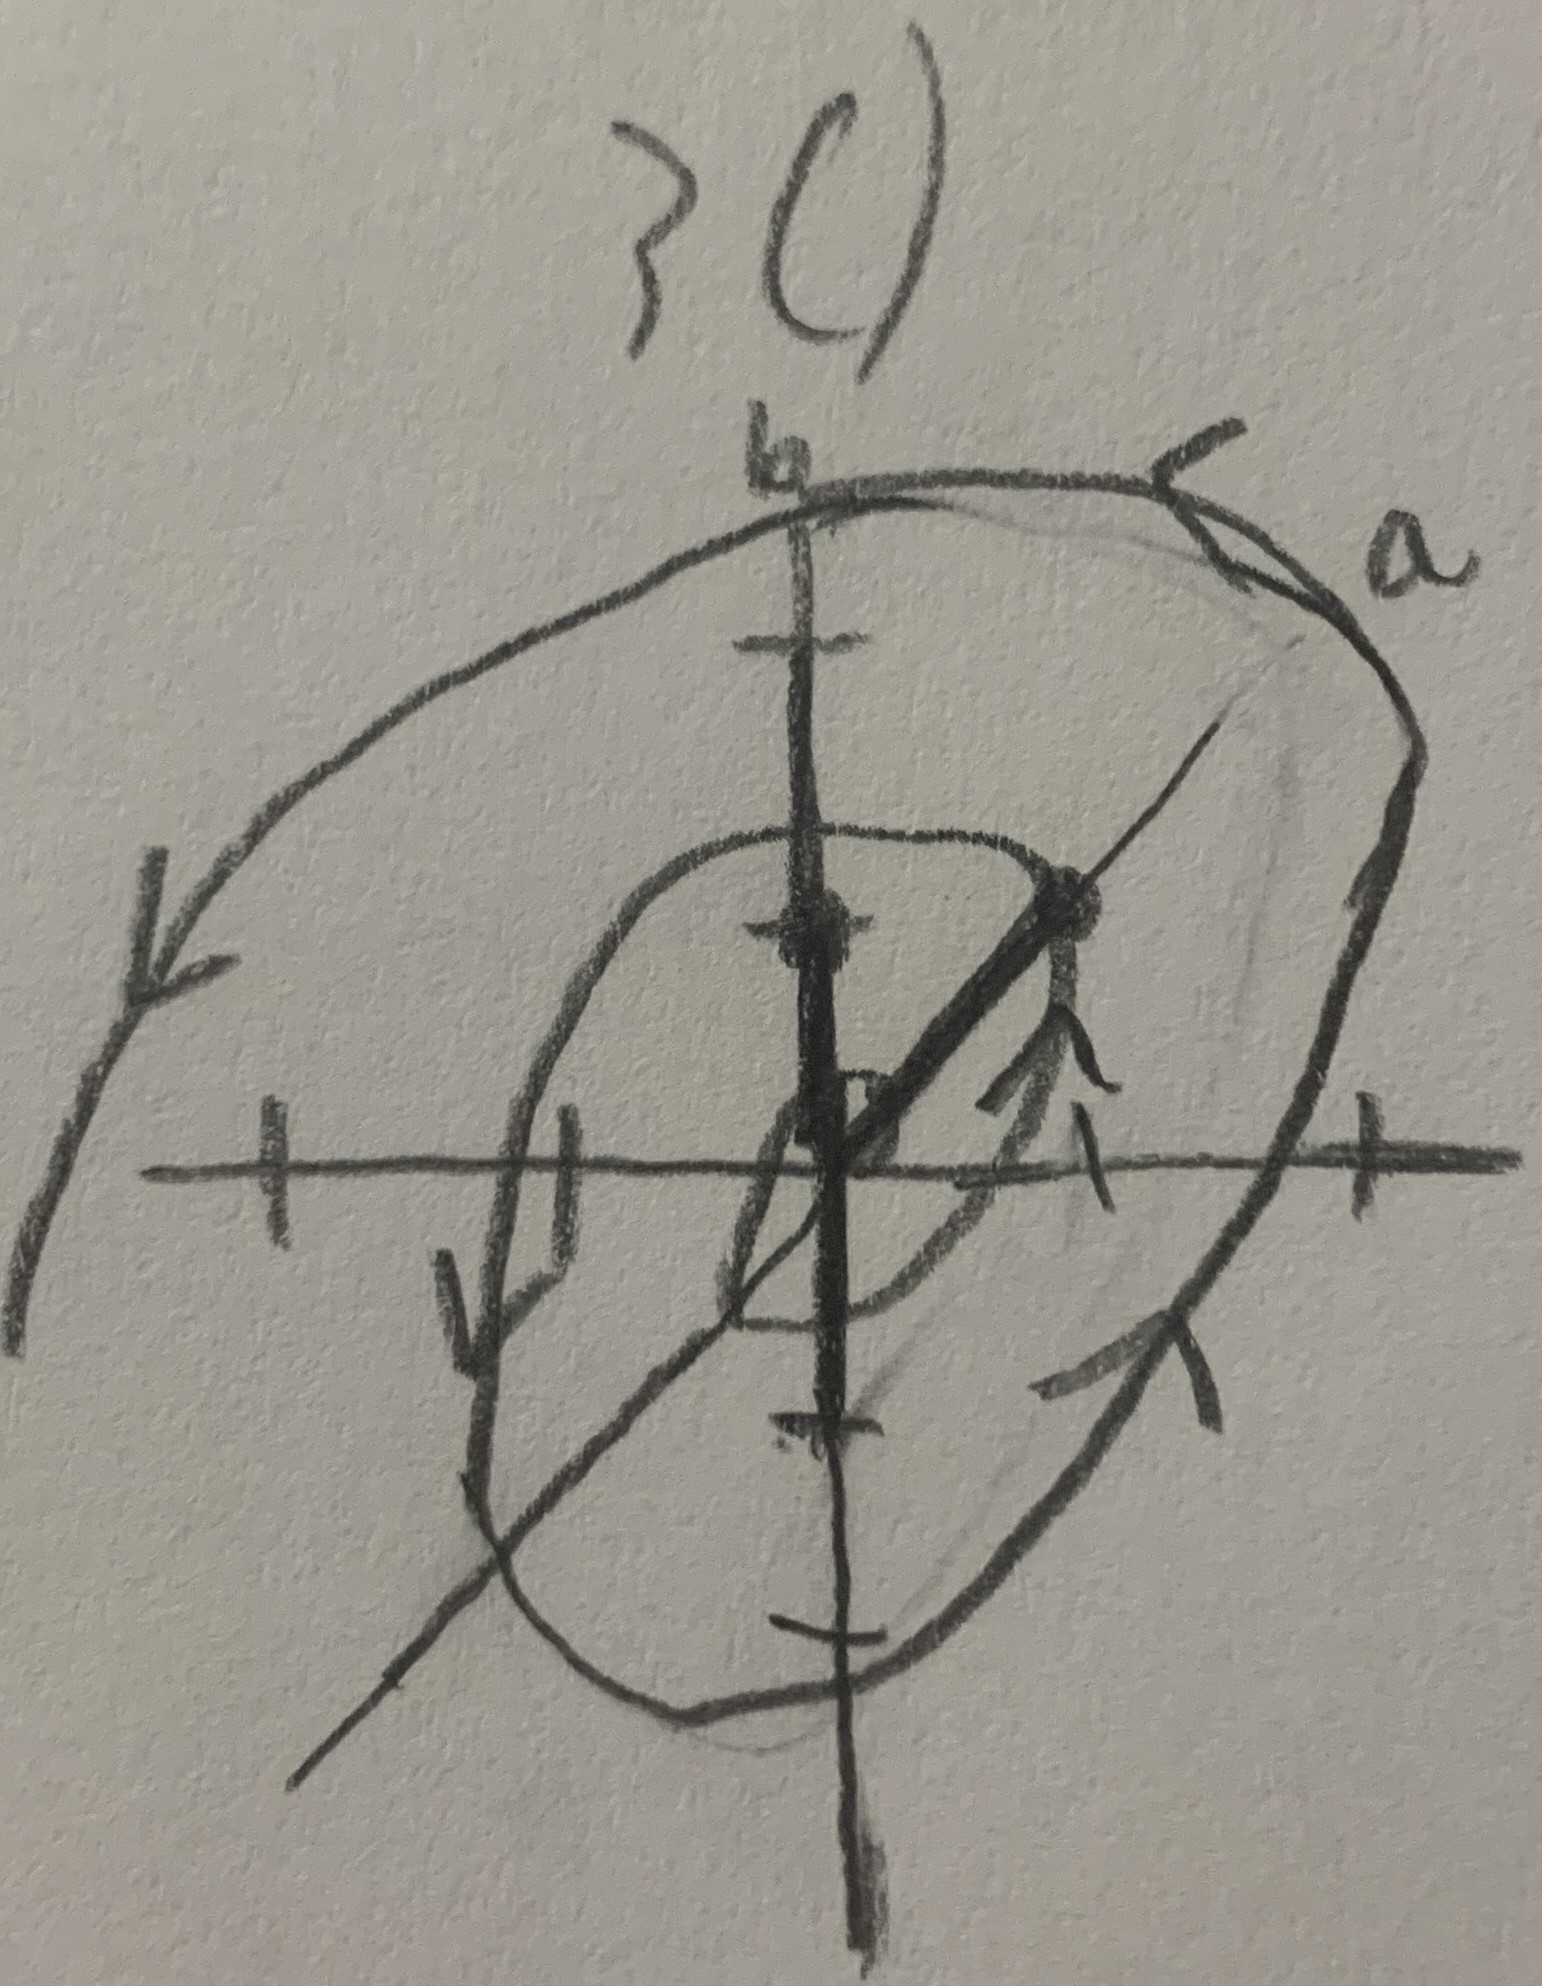 3C)
b
a